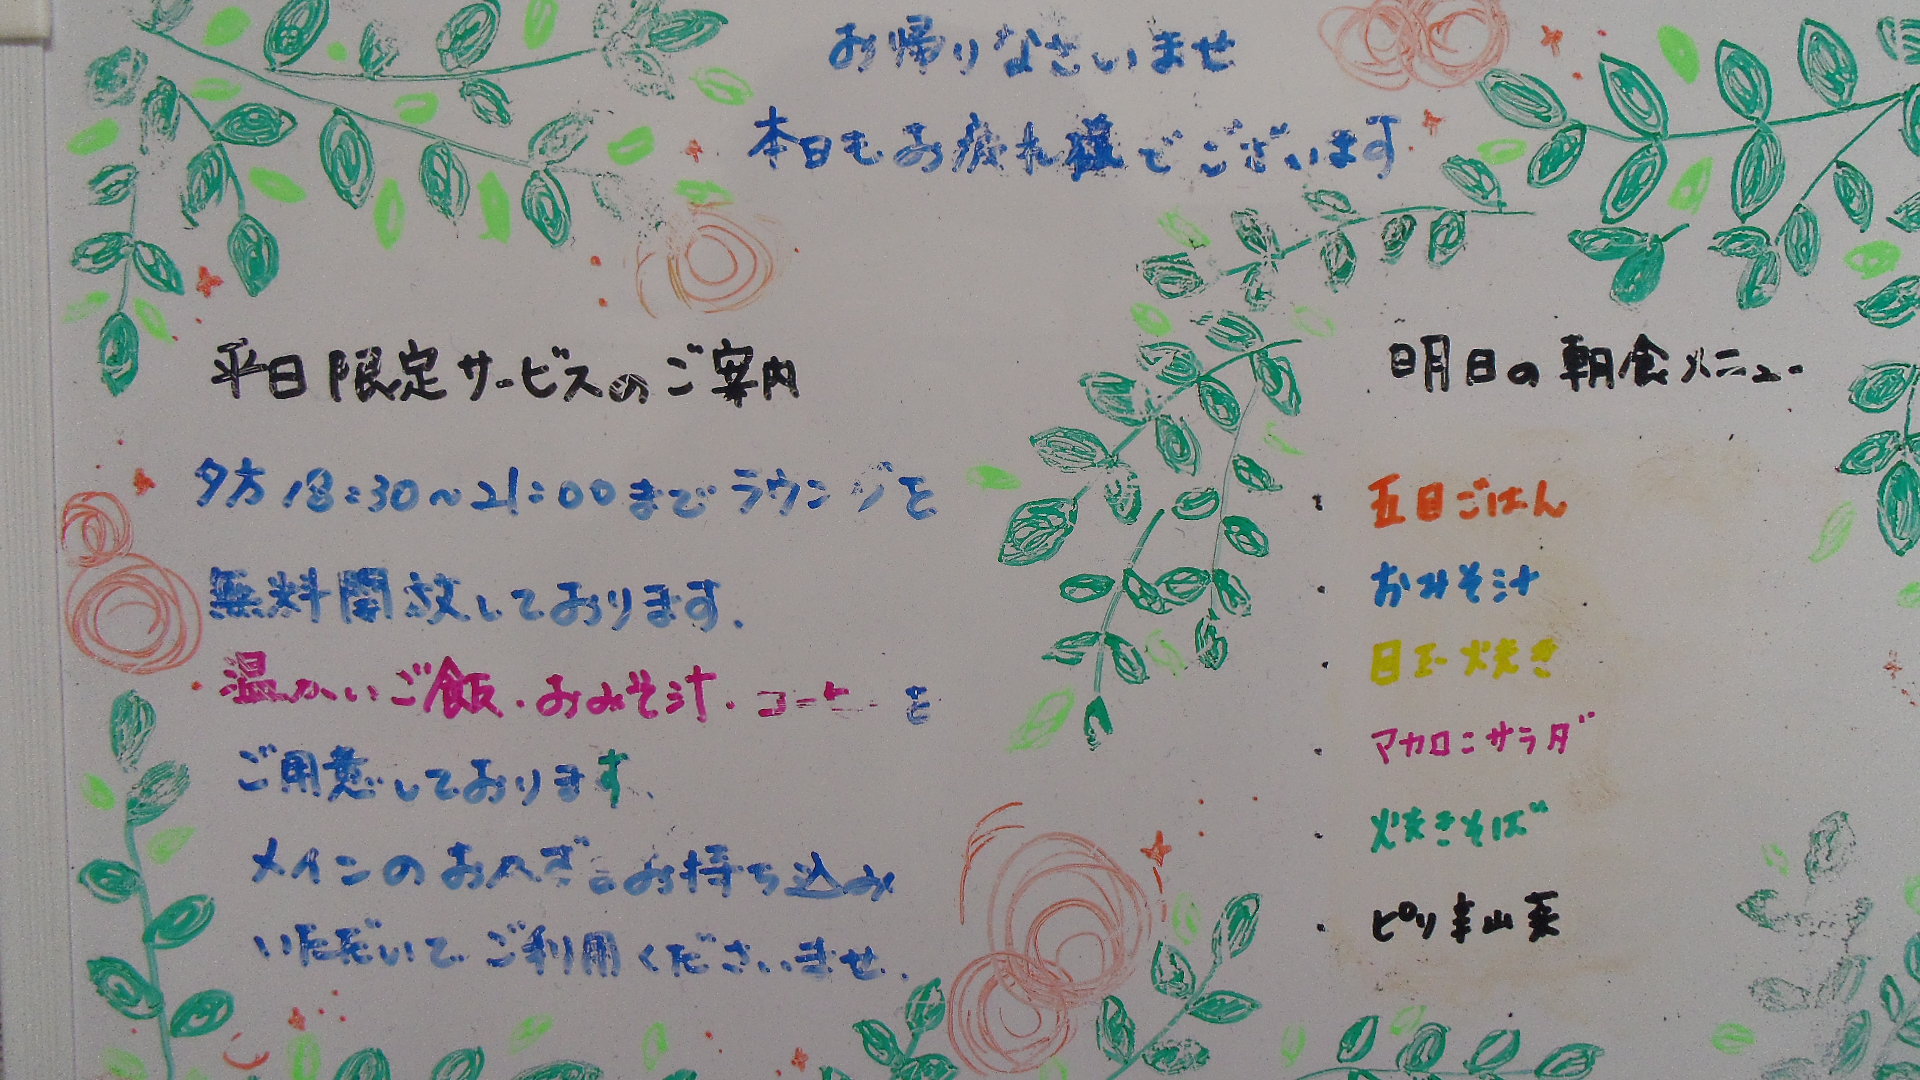 お帰りなさいませ
本日もお疲れ様でございます
平日限定サービスのご案内
夕方18:30~21:00までラウンジを
無料開放しております。
温かいご飯・おみそ汁・コーヒーを
ご用意しております。
メインのおかずをお持ち込み
いただいてご利用くださいませ。
明日の朝食メニュー
・五目ごはん
・おみそ汁
・目玉焼き
・マカロニサラダ
・焼きそば
・ピリ辛山菜